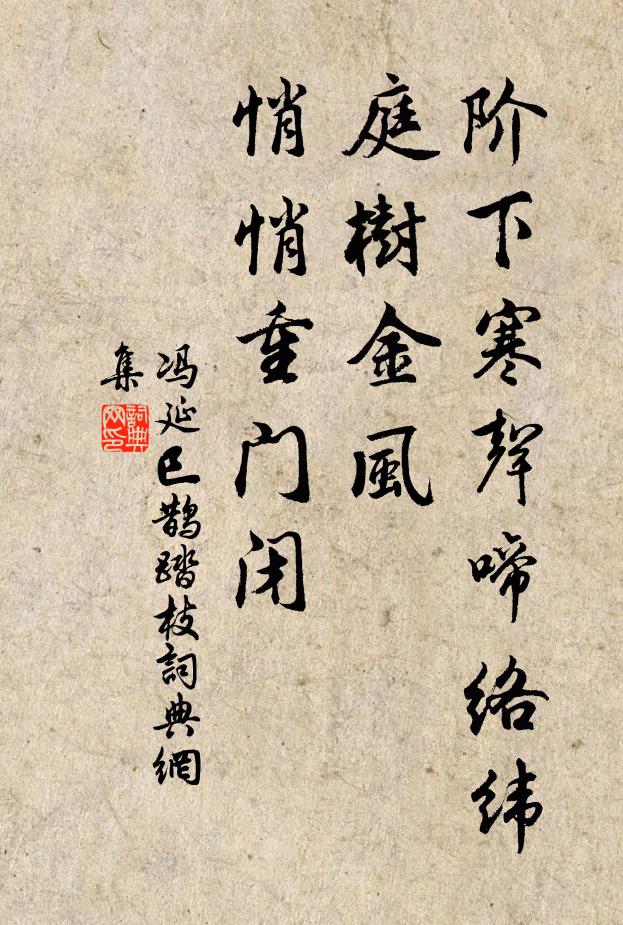 阶下寒聲啼络纬
庭樹金風
悄悄重门闭
冯延巳鹊踏枝詞典網
集
詞典网印